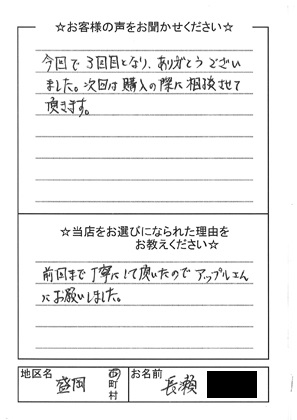 ☆お客様の声をお聞かせください☆
今回で3回目となり、ありがとうござい
ました。次回は購入の際に相談させて
頂きます。
☆当店をお選びになられた理由を
お教えください☆
前回まで丁寧にして頂いたのでアップルさん
にお願いしました。
地区名 盛岡 市町村 お名前 長瀬